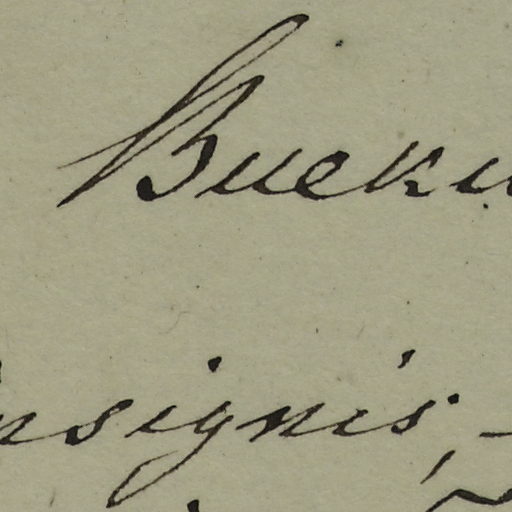 Bucku
insignis, -